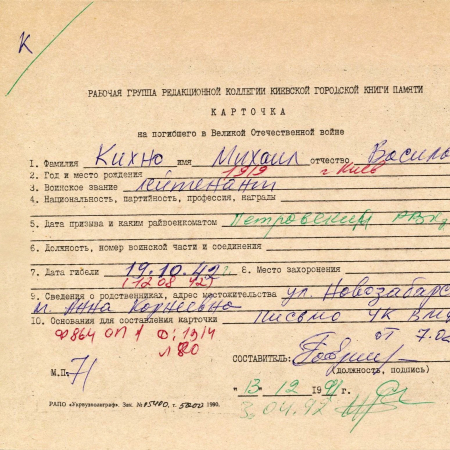 К
РАБОЧАЯ ГРУППА РЕДАКЦИОННОЙ КОЛЛЕГИИ КИЕВСКОЙ ГОРОДСКОЙ КНИГИ ПАМЯТИ
КАРТОЧКА
на погибшего в Великой Отечественной войне
1. Фамилия Кихно имя Михаил отчество Василь
2. Год и место рождения 1919 г. Киев
3. Воинское звание лейтенант
4. Национальность, партийность, профессия, награды
5. Дата призыва и каким райвоенкоматом Петровским РВК
6. Должность, номер воинской части и соединения
7. Дата гибели 19.10.42г. 8. Место захоронения
(12 08 42)
9. Сведения о родственниках, адрес местожительства ул. Новозабарс
м. Анна Корнеевна
10. Основания для составления карточки письмо ЧК
Ф864 ОП 1 Д; 1314 от 7.02
л 80
СОСТАВИТЕЛЬ:
(должность, подпись)
М.П.
"13" 12 1991г.
3.04.92
РАПО «Укрвузполиграф». Зак. № 5400, т. 5000 1990.